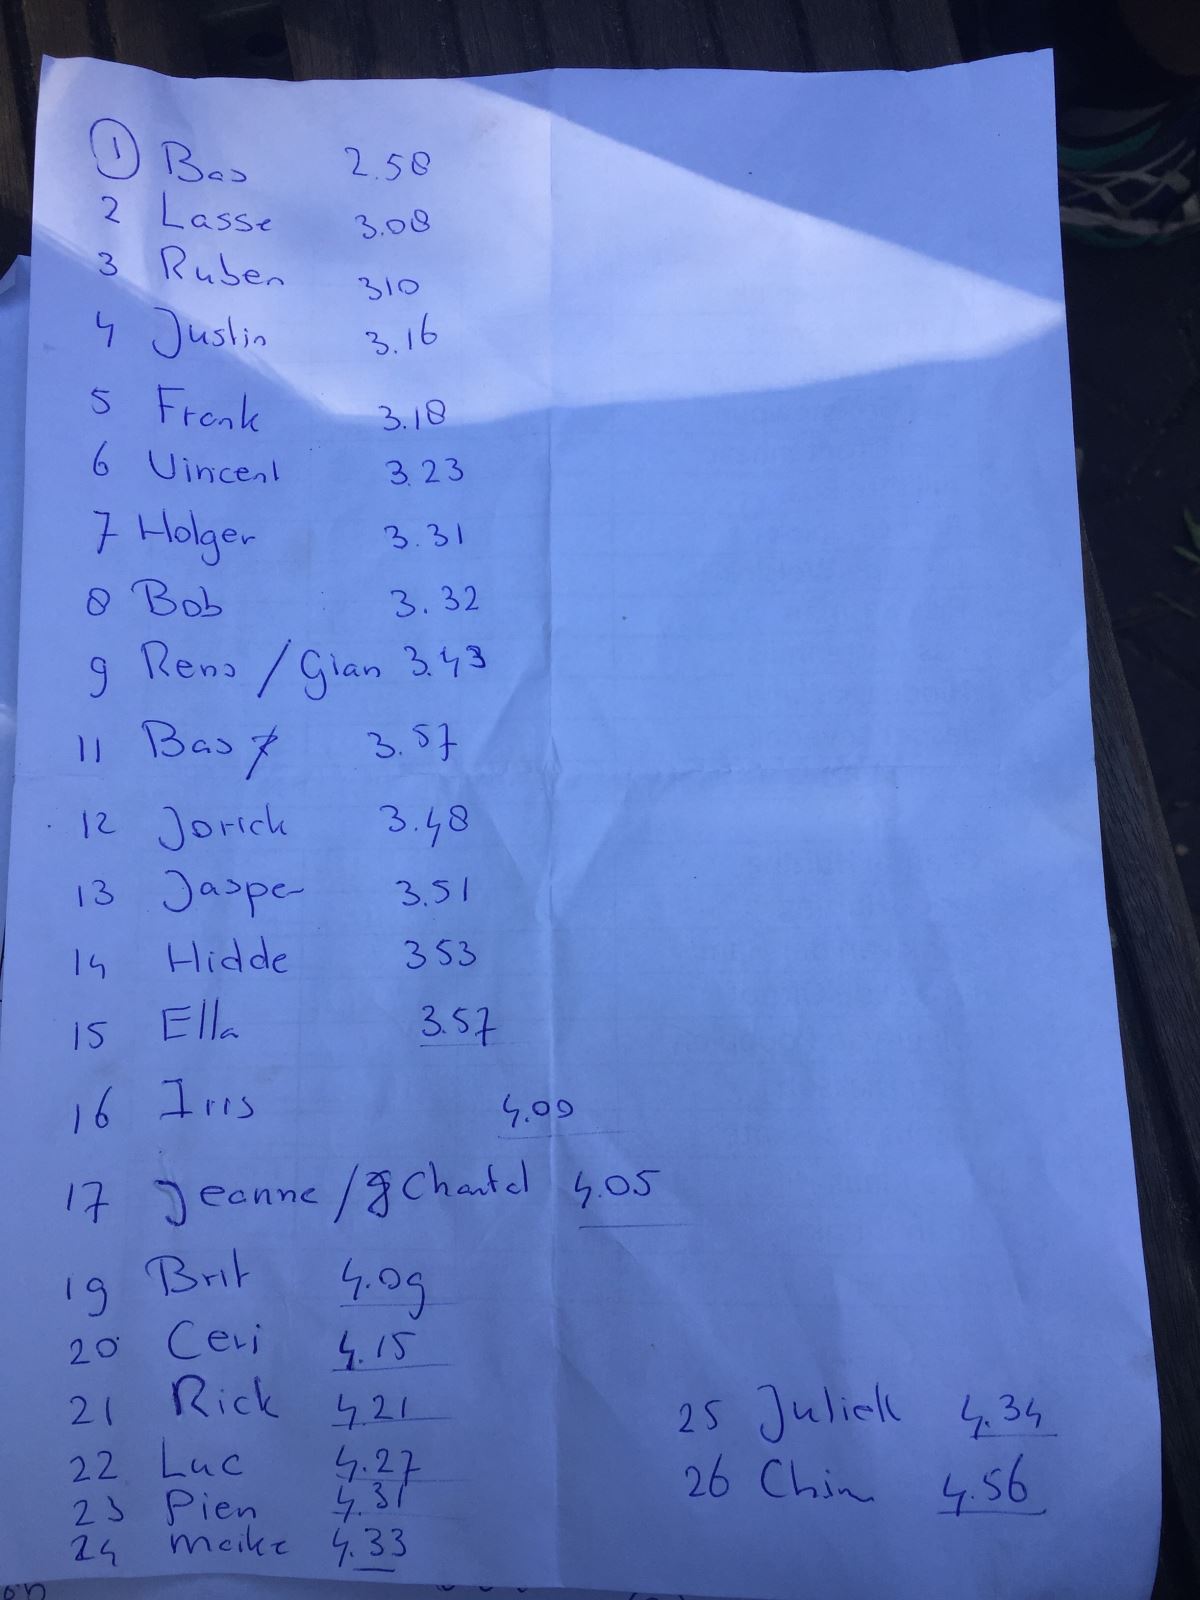 1 Bas 2.58
2 Lasse 3.08
3 Ruben 310
4 Justin 3.16
5 Frank 3.18
6 Vincent 3.23
7 Holger 3.31
8 Bob 3.32
9 Rens / Gian 3.43
11 Bas 3.57
12 Jorick 3.48
13 Jasper 3.51
14 Hidde 353
15 Ella 3.57
16 Iris 4.00
17 Jeanne / Chantal 4.05
19 Brit 4.09
20 Ceri 4.15
21 Rick 4.21
22 Luc 4.27
23 Pien 4.31
24 Meike 4.33
25 4.34
26 4.56